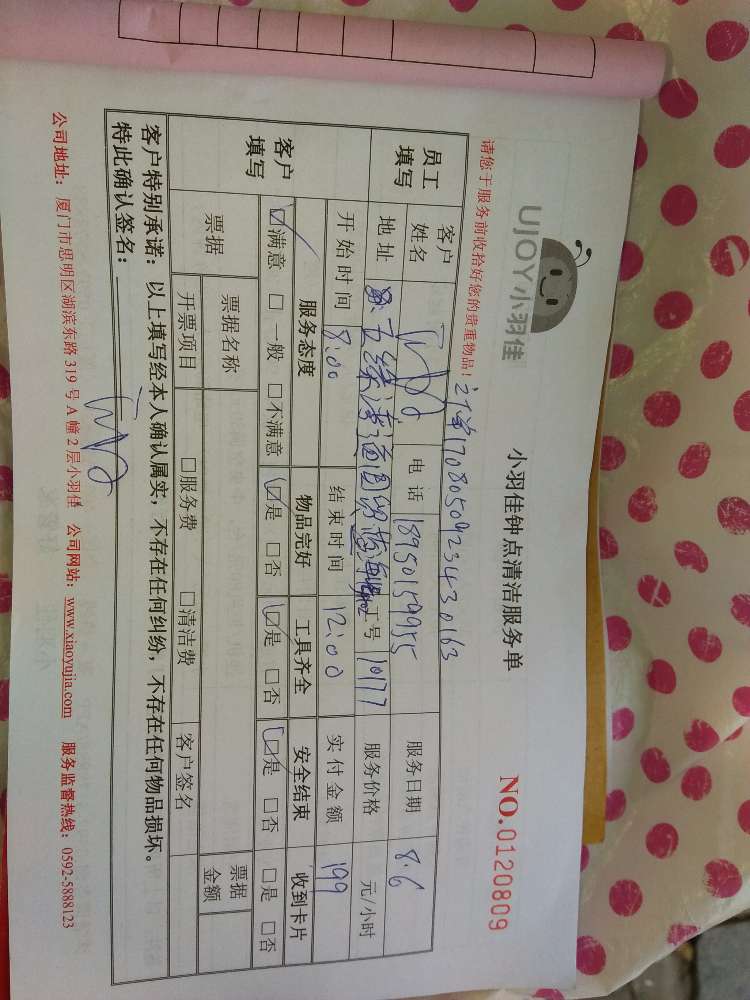 UJOY小羽佳
小羽佳钟点清洁服务单
NO.0120809
请您于服务前收拾好您的贵重物品!
订单1708050923430163
员工填写
客户姓名
电话 18950159955
服务日期 8.6
地址
工号 10177
服务价格 元/小时
开始时间 8:00
结束时间 12:00
实付金额 199
客户填写
服务态度 物品完好 工具齐全 安全结束 收到卡片
☑满意 □一般 □不满意 ☑是 □否 ☑是 □否 ☑是 □否 □是 □否
票据 票据名称 票据金额
开票项目 □服务费 □清洁费 客户签名
客户特别承诺:以上填写经本人确认属实,不存在任何纠纷,不存在任何物品损坏。
特此确认签名:
公司地址:厦门市思明区湖滨东路319号A幢2层小羽佳 公司网站:www.xiaoyujia.com 服务监督热线:0592-5888123